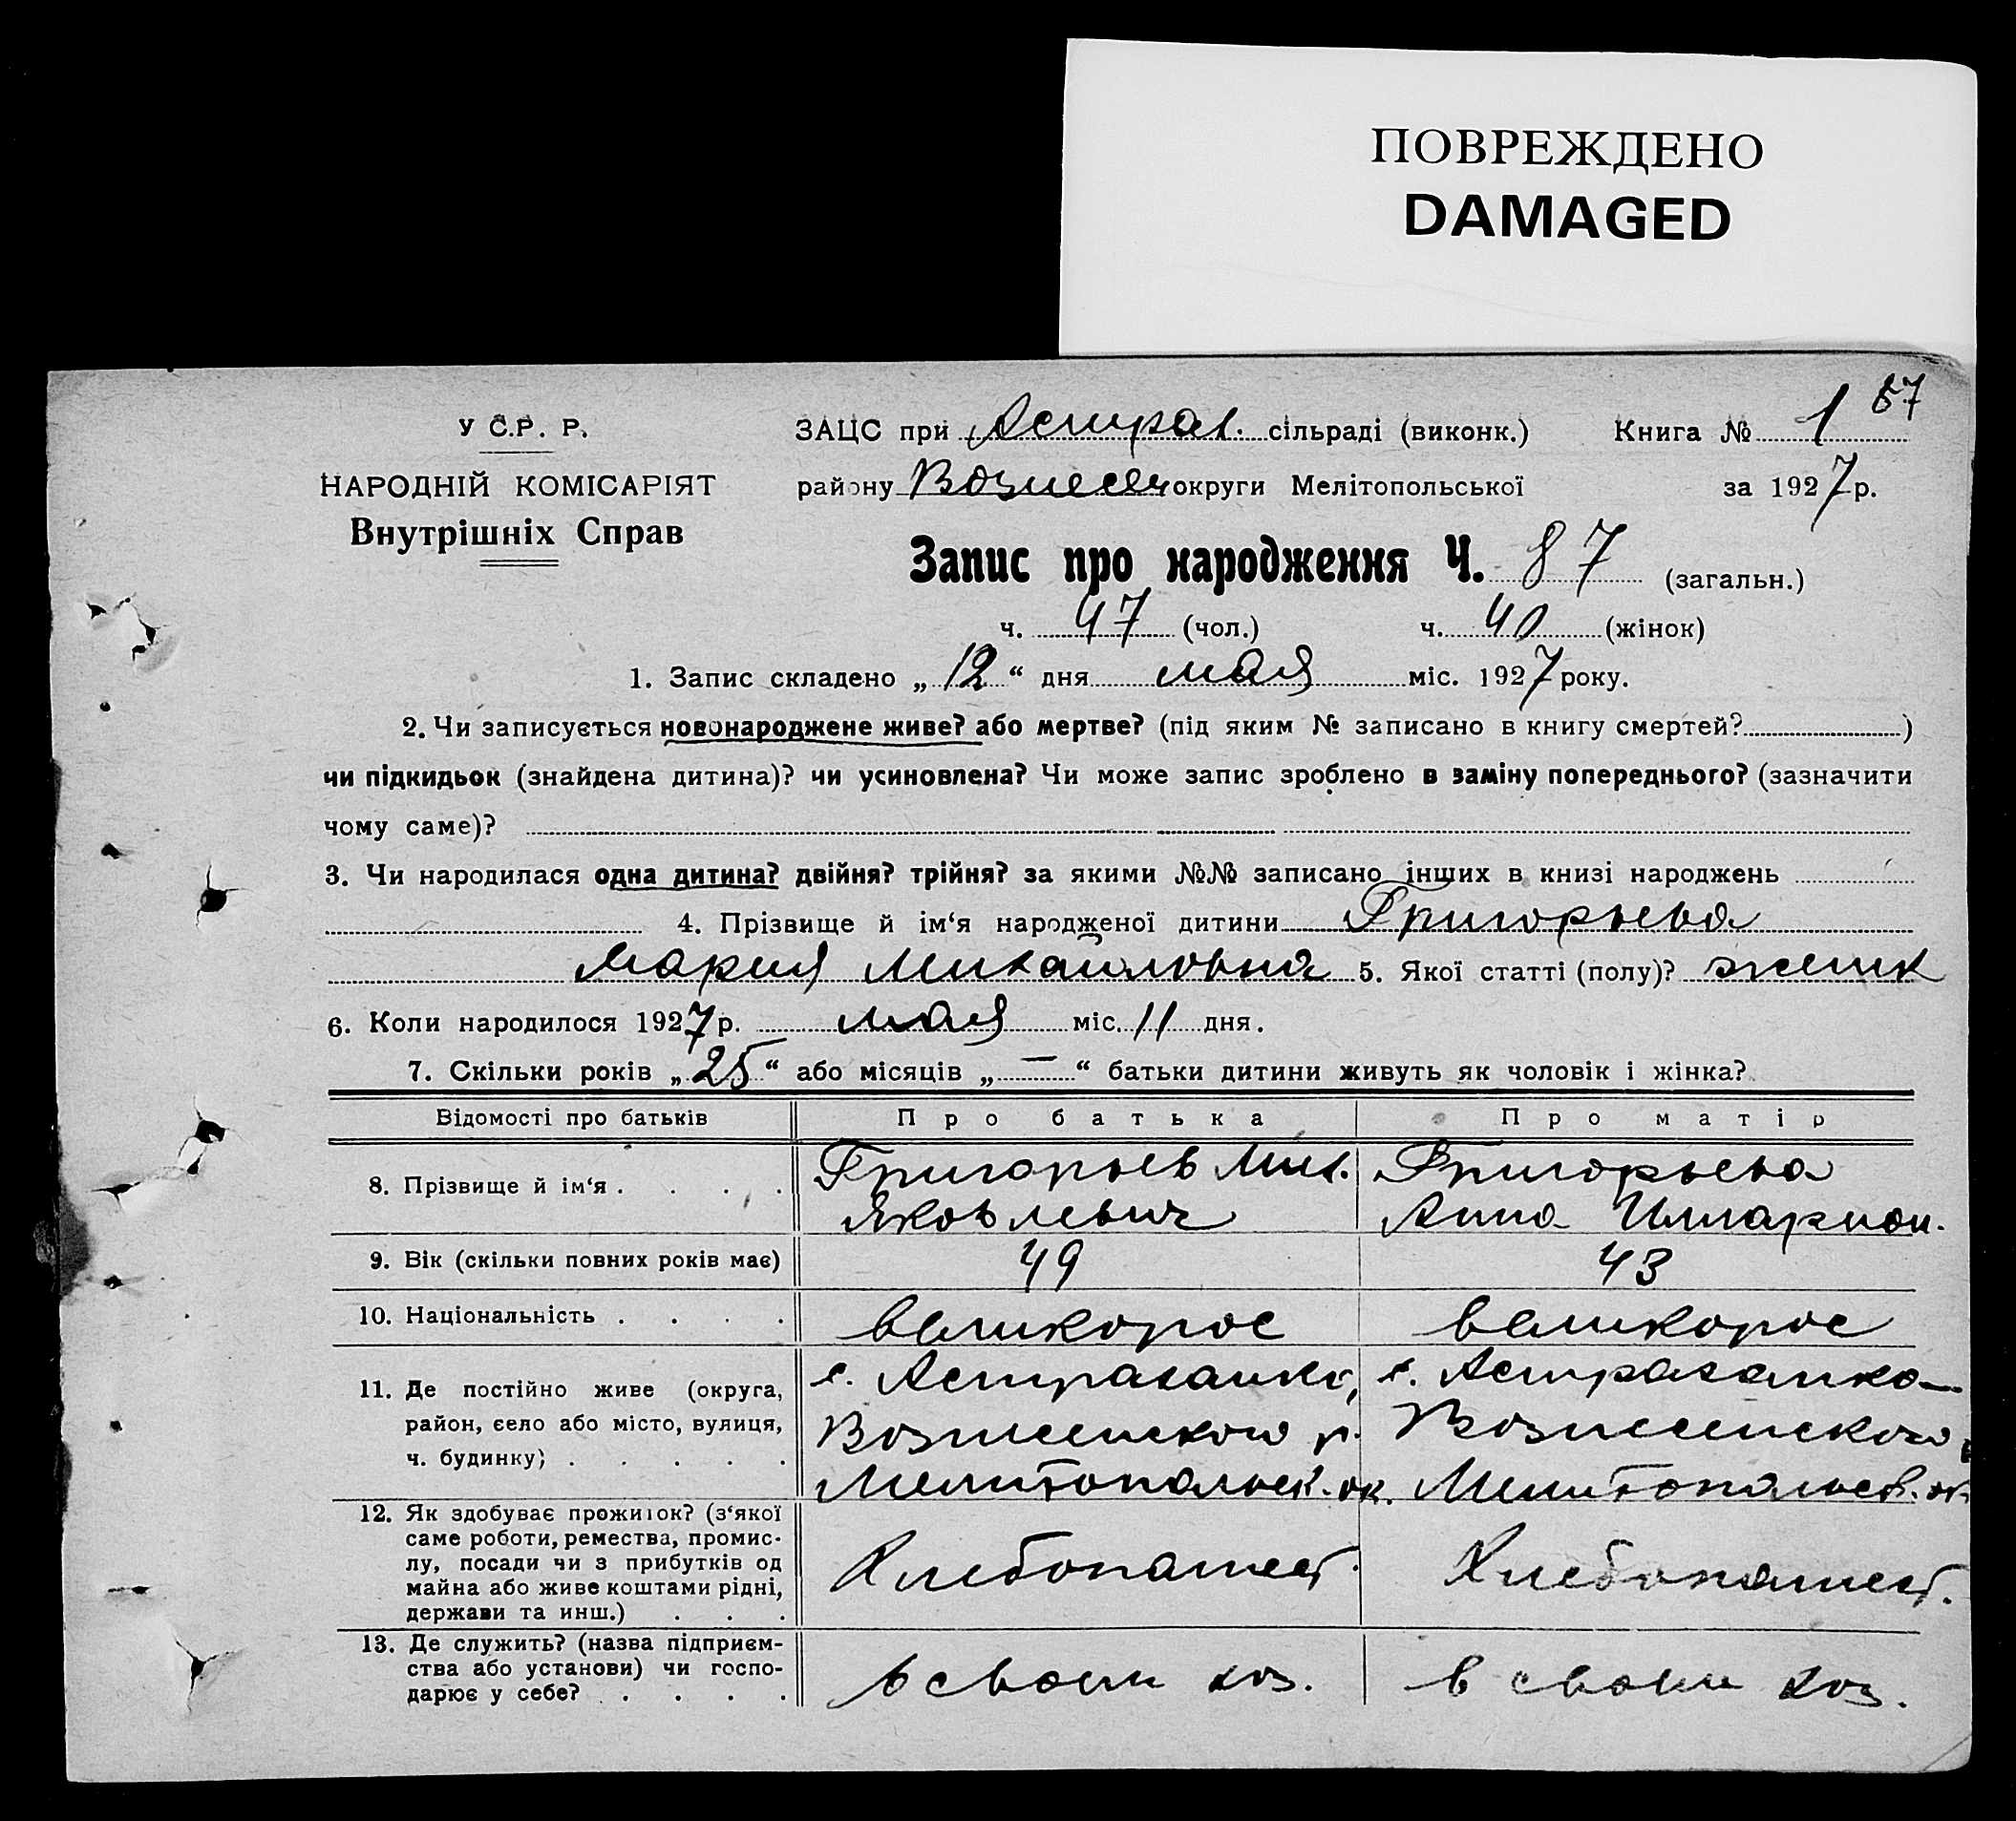 ПОВРЕЖДЕНО
DAMAGED
57
У С.Р.Р. ЗАЦС при Астрах. сільраді (виконк.) Книга № 1
НАРОДНІЙ КОМІСАРІЯТ району Вознесен округи Мелітопольської за 1927 р.
Внутрішніх Справ
Запис про народження Ч. 87 (загальн.)
ч. 47 (чол.) ч. 40 (жінок)
1. Запис складено „12“ дня мая міс. 1927 року.
2. Чи записується новонароджене живе? або мертве? (під яким № записано в книгу смертей? )
чи підкидьок (знайдена дитина)? чи усиновлена? Чи може запис зроблено в заміну попереднього? (зазначити
чому саме)?
3. Чи народилася одна дитина? двійня? трійня? за якими №№ записано інших в книзі народжень
4. Прізвище й ім‘я народженої дитини Григорьева
Мария Михайловна 5. Якої статті (полу)? женск
6. Коли народилося 1927 р. мая міс. 11 дня.
7. Скільки років „25“ або місяців „—“ батьки дитини живуть як чоловік і жінка?
Відомості про батьків Про батька Про матір
8. Прізвище й ім‘я . . . . Григорьев Мих. Григорьева
Яковлевич Анна Илларион.
9. Вік (скільки повних років має) 49 43
10. Національність . . . . великорос великорос
11. Де постійно живе (округа, с. Астраханка, с. Астраханка
район, село або місто, вулиця, Вознесенского р. Вознесенского
ч. будинку) . . . . . Мелитопольск. ок. Мелитопольск. ок.
12. Як здобуває прожиток? (з‘якої
саме роботи, ремества, промис-
лу, посади чи з прибутків од Хлебопашест. Хлебопашест.
майна або живе коштами рідні,
держави та инш.) . . .
13. Де служить? (назва підприєм-
ства або установи) чи госпо- в своем хоз. в своем хоз.
дарює у себе? . . . .